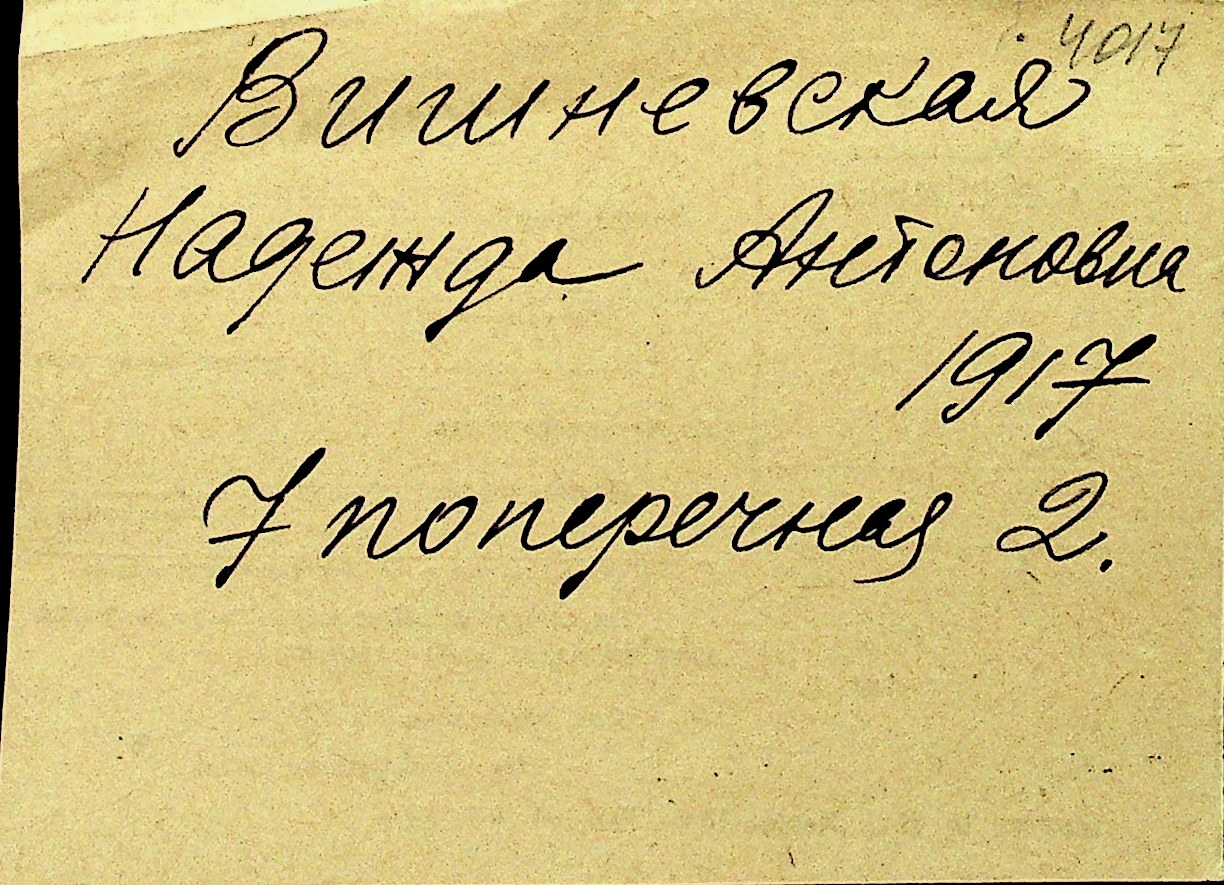 4017
Вишневская
Надежда Антоновна
1917
7 поперечная 2.